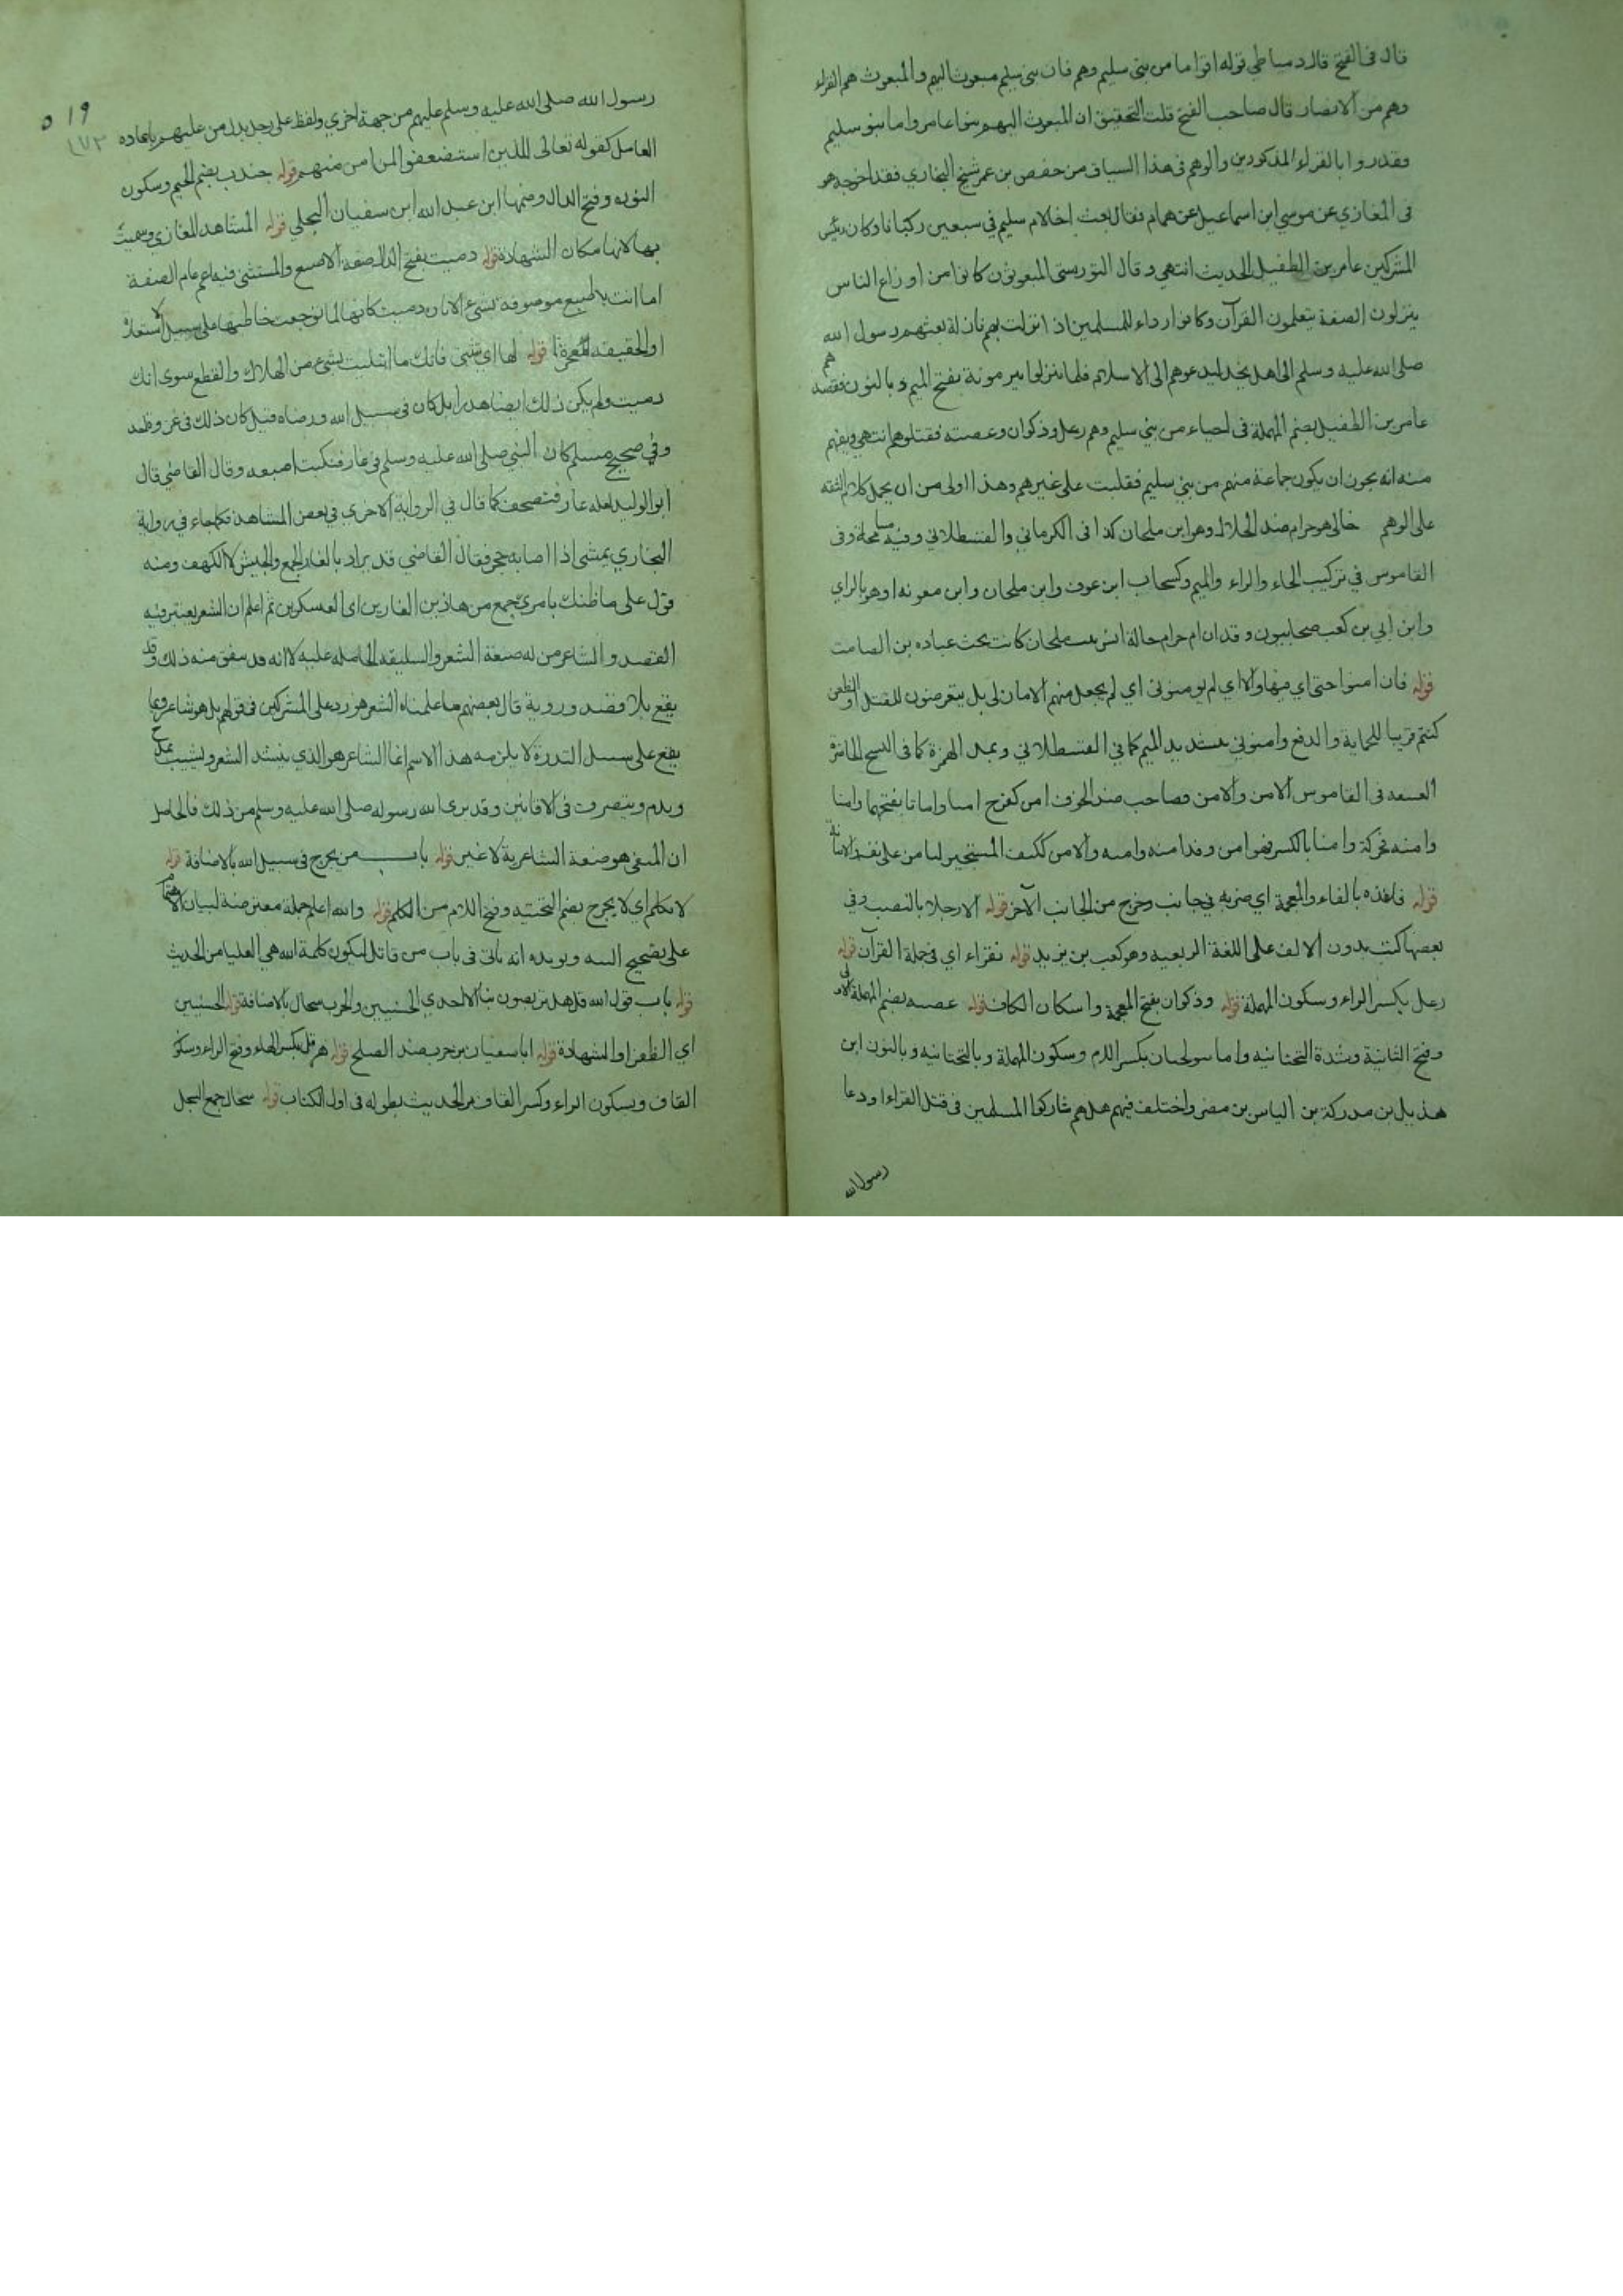 قال في الفتح قال دمياطي قوله اقواما من بني سليم وهم فان بني سليم مبعوث اليهم والمبعوث هم القراء
وهم من الانصار قال صاحب الفتح قلت التحقيق ان المبعوث اليهم بنوا عامر واما بنو سليم
فغدروا بالقراء المذكورين والوهم في هذا السياق من حفص بن عمر شيخ البخاري فقد اخرجه هو
في المغازي عن موسي ابن اسماعيل عن همام فقال بعث اخالام سليم في سبعين ركبانا وكان رئيس
المشركين عامر بن الطفيل الحديث انتهي وقال التوربستي المبعوثون كانوا من اوزاع الناس
ينزلون الصفة يتعلمون القرآن وكانوا رداء للمسلمين اذا نزلت بهم نازلة بعثهم رسول الله
صلى الله عليه وسلم الى اهل نجد ليدعوهم الى الاسلام فلما نزلوا بير مونة بفتح الميم وبالنون فقصدهم
عامر بن الطفيل بضم المهملة في احياء من بني سليم وهم رعل وذكوان وعصية فقتلوهم انتهي ويفهم
منه انه يجوز ان يكون جماعة منهم من بني سليم فغلبت على غيرهم وهذا اولى من ان يحمل كلام الثقه
على الوهم خالي هو حرام ضد الحلال وهو ابن ملحان كذا في الكرماني والقسطلاني وفيه مسامحة وفي
القاموس في تركيب الحاء والراء والميم وكسحاب ابن عوف وابن ملحان وابن معونه او هو بالزاي
وابن ابي بن كعب صحابيون و ام حرام خالة انس بنت ملحان كانت تحت عباده بن الصامت
قوله فان امنوا حتى اي فيها والا اي لم يومنوني اي لم يجعل منهم الامان لي بل يتعرضون للقتل او الطعن
كنتم قريبا للحماية والدفع وامنوني بتشديد الميم كما في القسطلاني وبمد الهمزة كما في النسخ الحاضرة
في القاموس الامن والامن كصاحب ضد الخوف امن كفرح امنا وامانا بفتحهما وامنا
وامنة محركة وامنا بالكسر فهو امن و امنه وامنه والامن ككتف المستجير ليامن على نفسه
قوله فانفذه بالفاء والمعجمة اي ضربه في جانب وخرج من الجانب الآخر قوله الا رجلا بالنصب وفي
بعضها كتب بدون الالف على اللغة الربعية وهو كعب بن يزيد قوله نقراء اي في جملة القرآن قوله
رعل بكسر الراء وسكون المهملة قوله وذكوان بفتح المعجمة واسكان الكاف قوله عصيه بضم المهملة الاولى
وفتح الثانية وشدة التحتانيه واما بنو لحيان بكسر اللام وسكون المهملة وبالتحتانيه وبالنون ابن
هذيل بن مدركة بن الياس بن مضر واختلف فيهم هل هم شاركوا المسلمين في قتل القراء او دعا
رسول الله
٥١٩
١٧٣
رسول الله صلى الله عليه وسلم عليهم من جهة اخري ولفظ على رجل بدل من عليهم باعاده
العامل كقوله تعالى للذين استضعفوا لمن امن منهم قوله جندب بضم الجيم وسكون
النون وفتح الدال وضمها ابن عبد الله ابن سفيان البجلي قوله المشاهد المغازي وسميت
بها لانها مكان الشهادة قوله دميت بفتح الدال صفة الاصبع والمستثنى فيه اعم عام الصفة
اما انت يا اصبع موصوفة بشيء الا بان دميت كانها لما توجعت خاطبها على سبيل الاستعارة
او الحقيقه معجزة قوله لها اي تثبتي فانك ما ابتليت بشيء من الهلاك والقطع سوى انك
دميت ولم يكن ذلك ايضا هدرا بل كان في سبيل الله ورضاه قيل كان ذلك في غزوة احد
وفي صحيح مسلم كان النبي صلى الله عليه وسلم في غار فنكبت اصبعه وقال القاضي قال
ابو الوليد لعله غاز فتصحف كما قال في الرواية الاخري في بعض المشاهد وكما جاء في رواية
البخاري يمشي اذا اصابه حجر فقال القاضي قد يراد بالغار الجمع والجيش لا الكهف ومنه
قول علي ما ظنك بامري جمع من هاذين الغارين اي العسكرين ثم اعلم ان الشعر يعتبر فيه
القصد والشاعر من له صنعة الشعر والسليقه الحاصله عليه لا انه قد يتفق منه ذلك وقد
يقع بلا قصد وروية قال بعضهم ما علمناه الشعر هو رد على المشركين في قولهم بل هو شاعر وما
يقع على سبيل الندرة لا يلزمه هذا الاسم انما الشاعر هو الذي ينشد الشعر ويشبب ويمدح
ويذم ويتصرف في الافانين وقد برى الله رسوله صلى الله عليه وسلم من ذلك فالحاصل
ان المنفي هو صنعة الشاعرية لا غير قوله باب من يجرح في سبيل الله بالاضافة قوله
لا يكلم اي لا يجرح بضم التحتيه وفتح اللام من الكلم قوله والله اعلم جملة معترضة لبيان الاهتمام
على تصحيح النيه ويويده انه ياتي في باب من قاتل لتكون كلمة الله هي العليا من الحديث
قوله باب قول الله قل هل تربصون بنا الا احدي الحسنيين والحرب سجال بالاضافة قوله الحسنيين
اي الظفر او الشهادة قوله ابا سفيان بن حرب ضد الصلح قوله هرقل بكسر الهاء وفتح الراء وسكون
القاف وبسكون الراء وكسر القاف مر الحديث بطوله في اول الكتاب قوله سجال جمع السجل